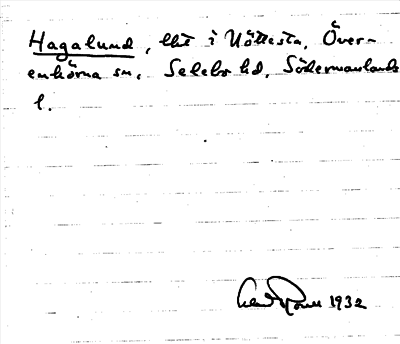 Hagalund, lht i Nöttesta, Över-
enhörna sn, Selebo hd, Södermanlands
l.
1932